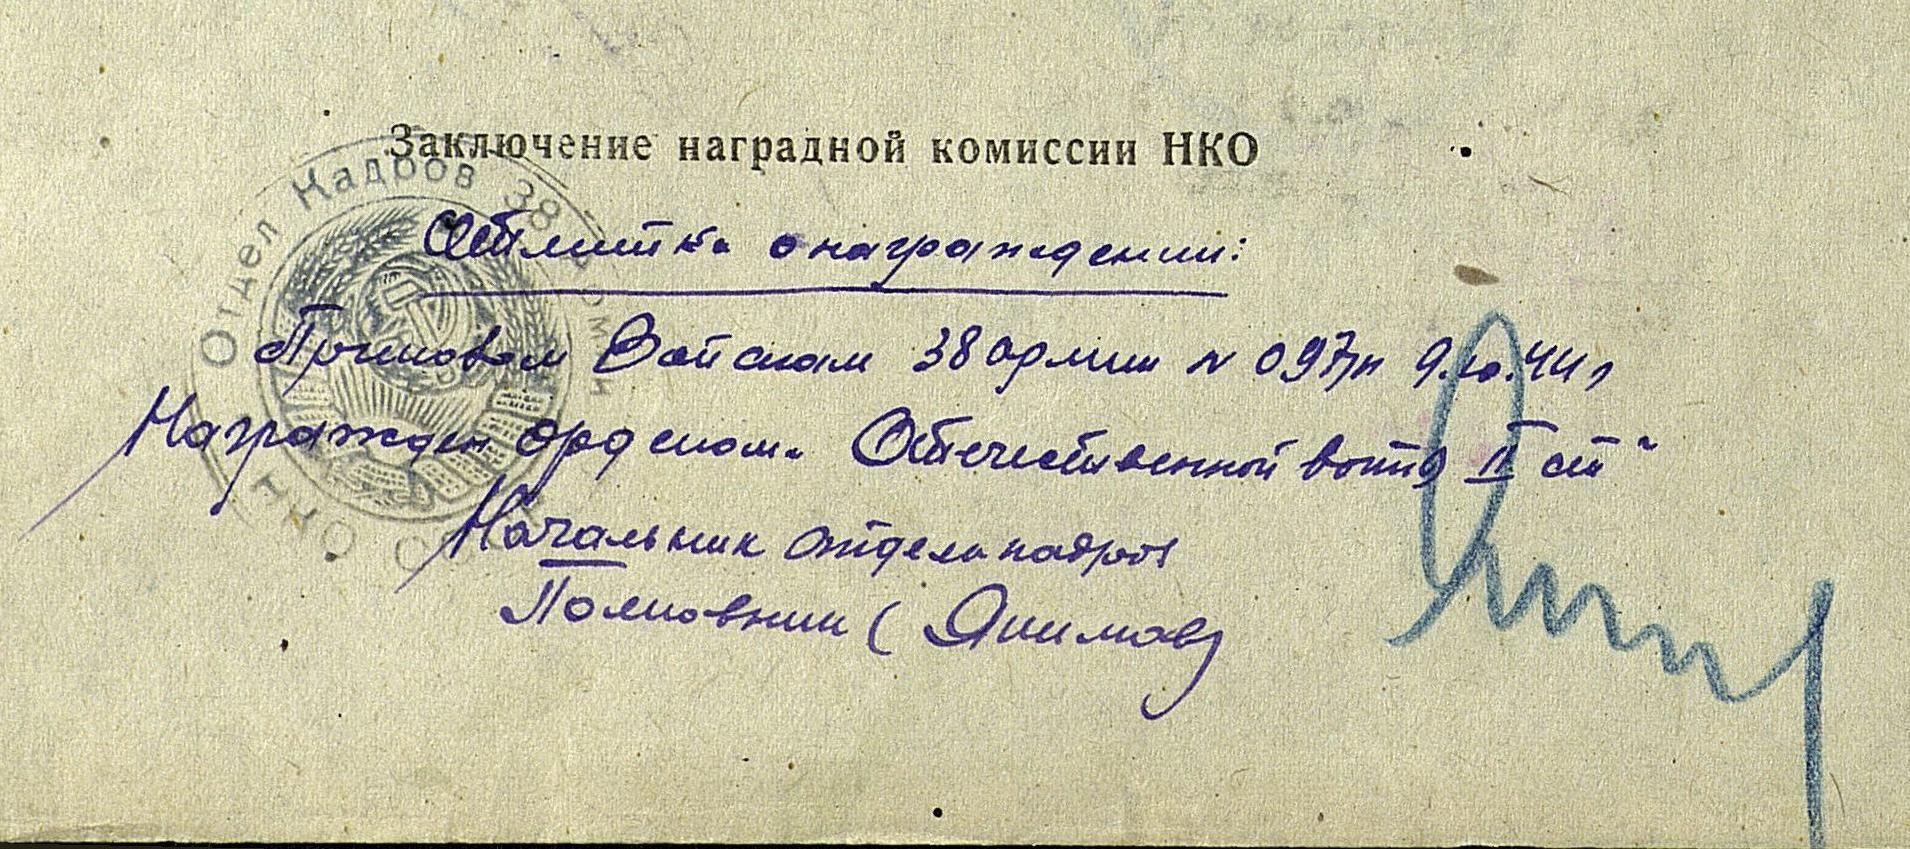 Заключение наградной комиссии НКО
Отдел Кадров 38 Армии
НКО СССР
Отметка о награждении:
Приказом Войскам 38 армии № 097/н 9.10.44 г
Награжден орденом „Отечественной войны II ст“
Начальник отдела кадров
Полковник (Якимов)